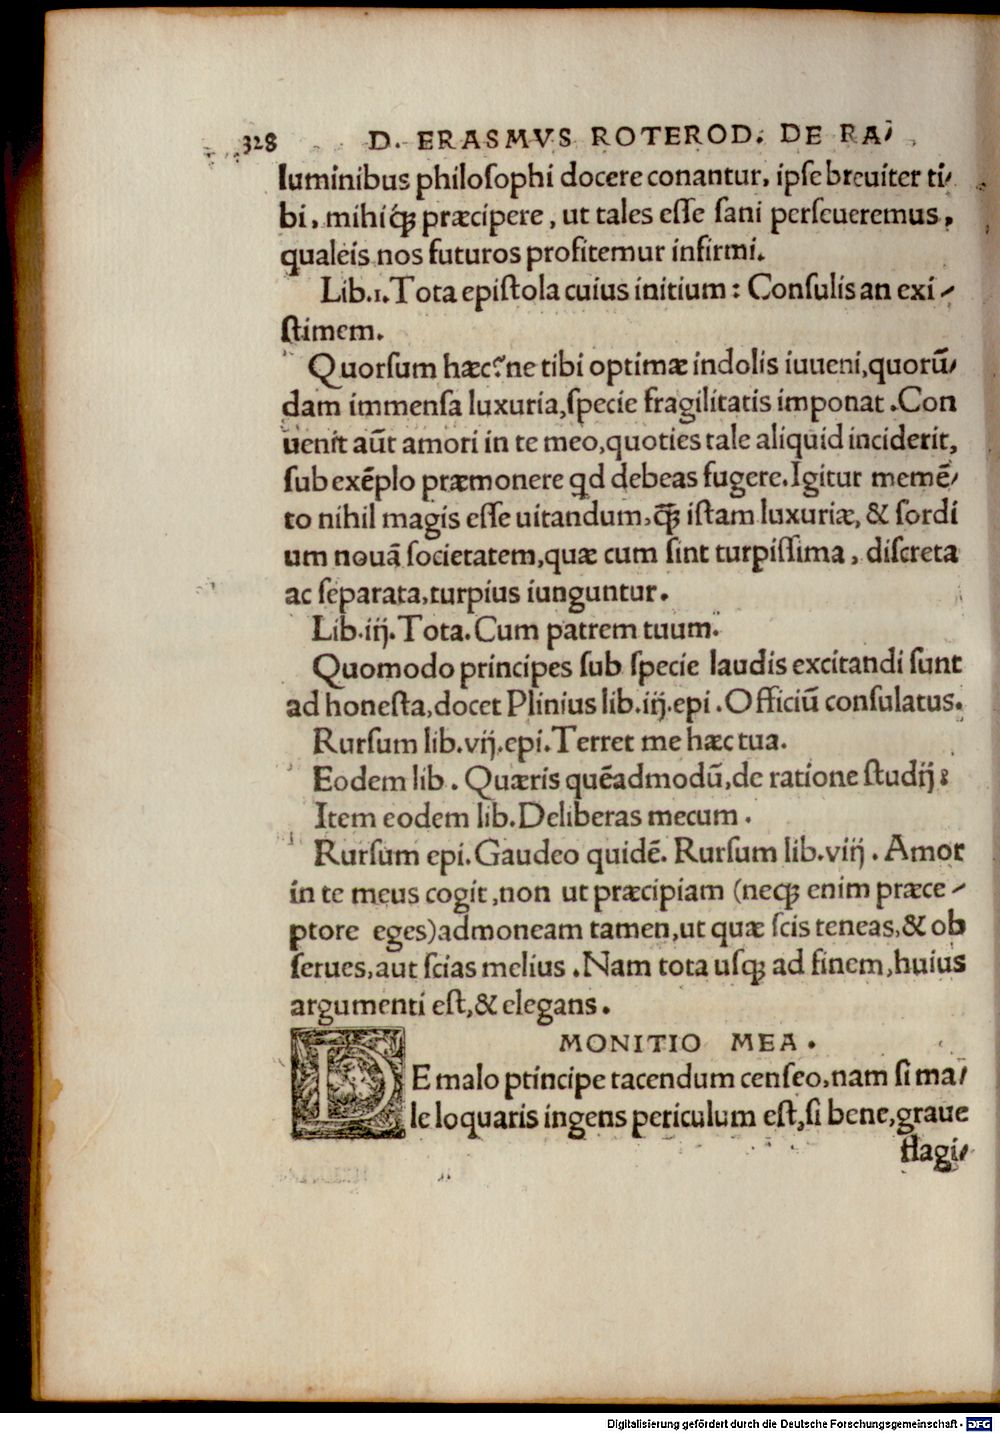 328 D. ERASMVS ROTEROD. DE RA-
luminibus philoſophi docere conantur, ipſe breuiter ti-
bi, mihiq́ꝫ præcipere, ut tales eſſe ſani perſeueremus,
qualeis nos futuros profitemur infirmi.
Lib.1. Tota epiſtola cuius initium: Conſulis an exi-
ſtimem.
Quorſum hæc? ne tibi optimæ indolis iuueni, quorū-
dam immenſa luxuria, ſpecie fragilitatis imponat. Con
uenit aūt amori in te meo, quoties tale aliquid inciderit,
ſub exēplo præmonere qd debeas fugere. Igitur memē-
to nihil magis eſſe uitandum, q̄ꝫ iſtam luxuriæ, & ſordi
um nouā ſocietatem, quæ cum ſint turpiſſima, diſcreta
ac ſeparata, turpius iunguntur.
Lib.iij. Tota. Cum patrem tuum.
Quomodo principes ſub ſpecie laudis excitandi ſunt
ad honeſta, docet Plinius lib.iij.epi. Officiū conſulatus.
Rurſum lib.vij.epi. Terret me hæc tua.
Eodem lib. Quæris quēadmodū, de ratione ſtudij:
Item eodem lib. Deliberas mecum.
Rurſum epi. Gaudeo quidē. Rurſum lib.viij. Amor
in te meus cogit, non ut præcipiam (neqꝫ enim præce-
ptore eges) admoneam tamen, ut quæ ſcis teneas, & ob
ſerues, aut ſcias melius. Nam tota uſqꝫ ad finem, huius
argumenti eſt, & elegans.
MONITIO MEA.
DE malo principe tacendum cenſeo, nam ſi ma-
le loquaris ingens periculum eſt, ſi bene, graue
flagi-
Digitalisierung gefördert durch die Deutsche Forschungsgemeinschaft - DFG